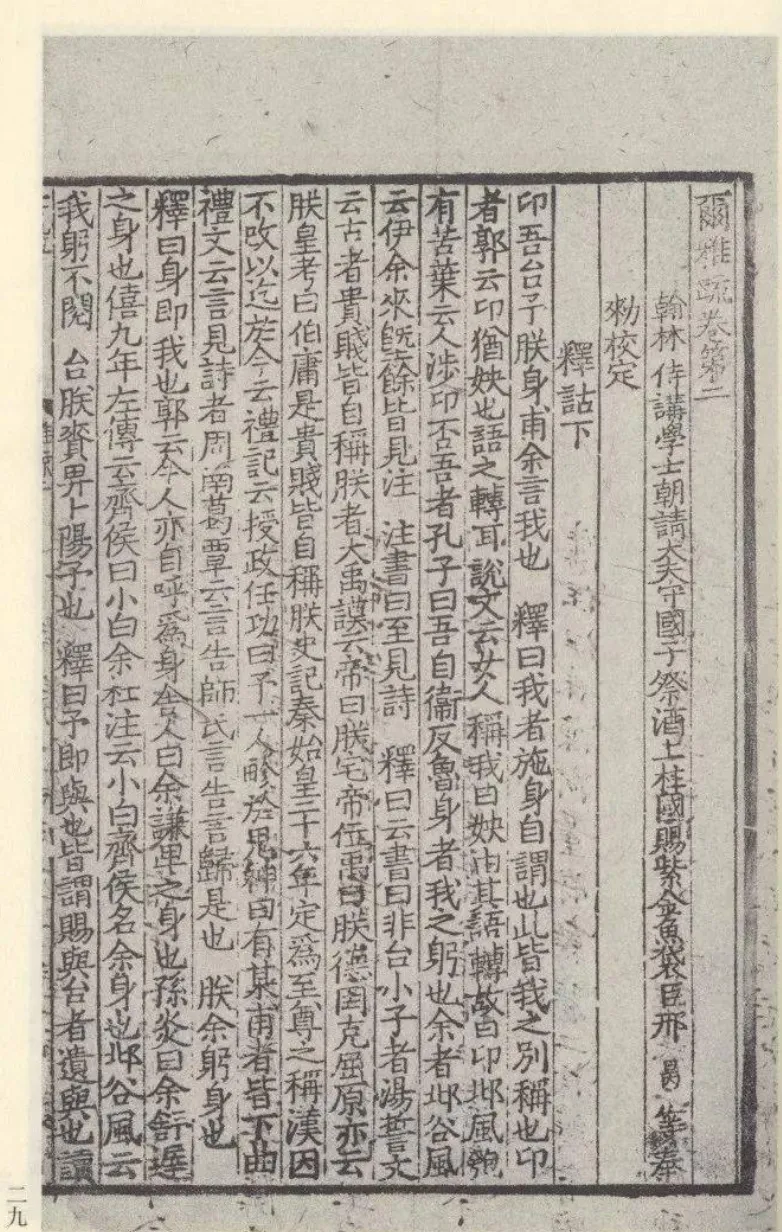 爾雅疏卷第二
翰林侍講學士朝請大夫守國子祭酒上柱國賜紫金魚袋臣邢昺等奉
勑校定
釋詁下
卬吾台予朕身甫余言我也　釋曰我者施身自謂也此皆我之別稱也卬
者郭云卬猶姎也語之轉耳說文云女人稱我曰姎由其語轉故曰卬邶風匏
有苦葉云人涉卬否吾者孔子曰吾自衞反魯身者我之躬也余者邶谷風
云伊余來塈餘皆見注　注書曰至見詩　釋曰云書曰非台小子者湯誓文
云古者貴賤皆自稱朕者大禹謨云帝曰朕宅帝位禹曰朕德罔克屈原亦云
朕皇考曰伯庸是貴賤皆自稱朕史記秦始皇二十六年定爲至尊之稱漢因
不改以迄於今云禮記云授政任功曰予一人畛於鬼神曰有某甫者皆下曲
禮文云言見詩者周南葛覃云言告師氏言告言歸是也　朕余躬身也
釋曰身即我也郭云今人亦自呼爲身舍人曰余謙卑之身也孫炎曰余舒遲
之身也僖九年左傳云齊侯曰小白余杜注云小白齊侯名余身也邶谷風云
我躬不閱　台朕賚畀卜陽予也　釋曰予即與也皆謂賜與台者遺與也讀
二九